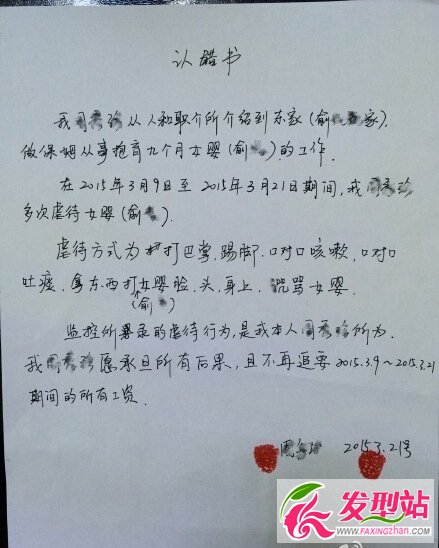 认错书
我周 从人和职介所介绍到东家(俞 家).
做保姆从事抱育九个月女婴(俞 )的工作.
在2015年3月9日至2015年3月21日期间,我
多次虐待女婴(俞 ).
虐待方式为打巴掌,踢脚,口对口咳嗽,口对口
吐痰,拿东西打女婴脸、头、身上.诅骂女婴.
(俞 )
监控所录的虐待行为,是我本人周 所为.
我 愿承担所有后果,且不再追要2015.3.9~2015.3.21
期间的所有工资.
周 2015.3.21号
发型站
WWW.FAXINGZHAN.COM